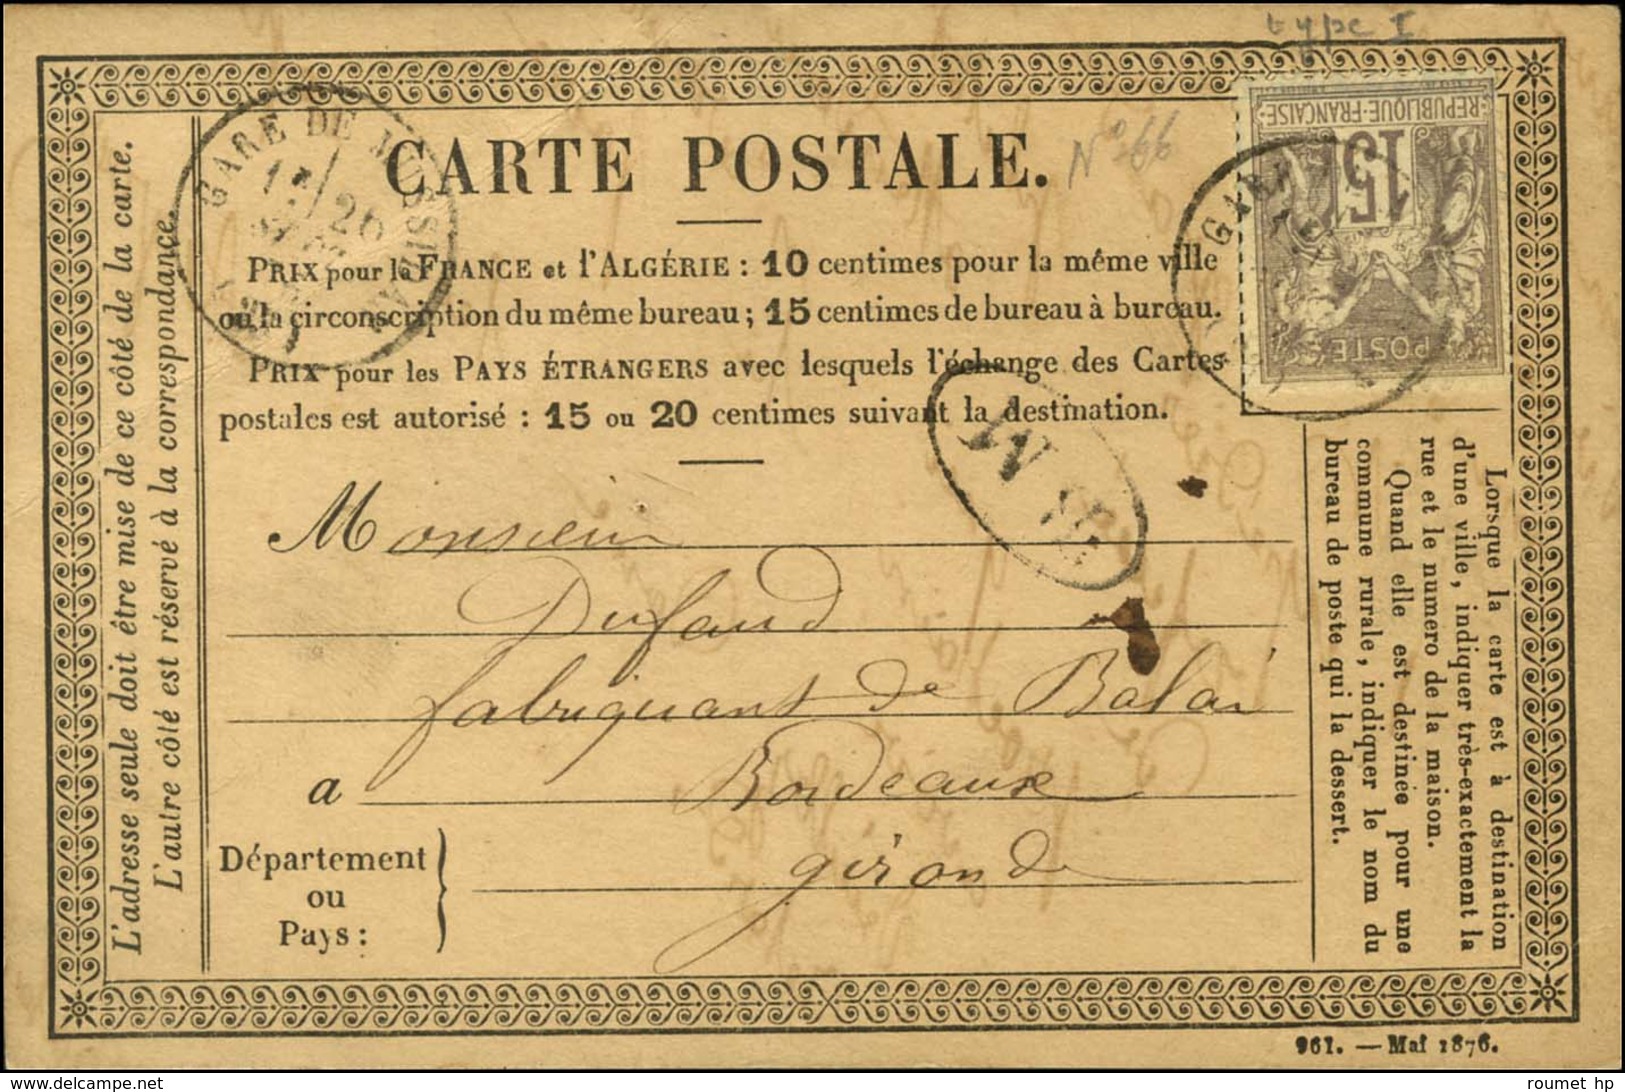 type I
GARE DE
26
CARTE POSTALE.
N° 66
RÉPUBLIQUE-FRANÇAISE
15
POSTES
GARE
PRIX pour la FRANCE et l'ALGÉRIE : 10 centimes pour la même ville
ou la circonscription du même bureau ; 15 centimes de bureau à bureau.
PRIX pour les PAYS ÉTRANGERS avec lesquels l'échange des Cartes
postales est autorisé : 15 ou 20 centimes suivant la destination.
L'adresse seule doit être mise de ce côté de la carte.
L'autre côté est réservé à la correspondance.
Monsieur
Dufaud
fabriquant de Balai
a Bordeaux
Département
ou
Pays :
gironde
Lorsque la carte est à destination
d'une ville, indiquer très-exactement la
rue et le numero de la maison.
Quand elle est destinée pour une
commune rurale, indiquer le nom du
bureau de poste qui la dessert.
961. — Mai 1876.
roumet hp